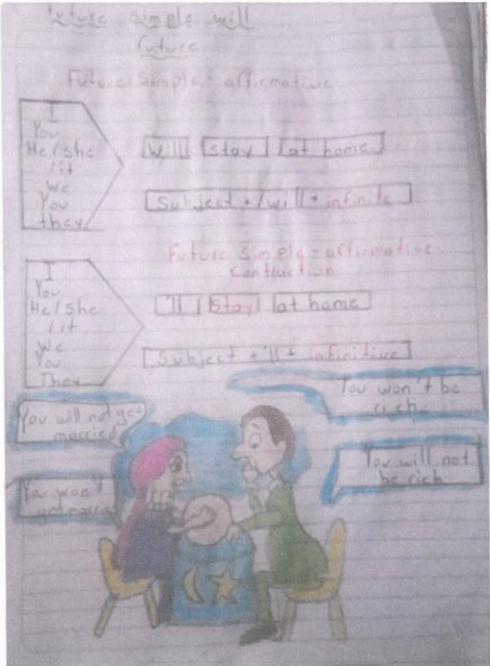 Future simple will
future
Future Simple - affirmative
I
You
He/she
/it
We
You
they
will stay at home
Subject + /will + infinite
Future simple - affirmative
contraction
I
You
He/She
/it
We
You
They
'll stay at home
Subject + 'll + infinitive
You will not get
married
You won't
get
You won't be
rich
You will not
be rich